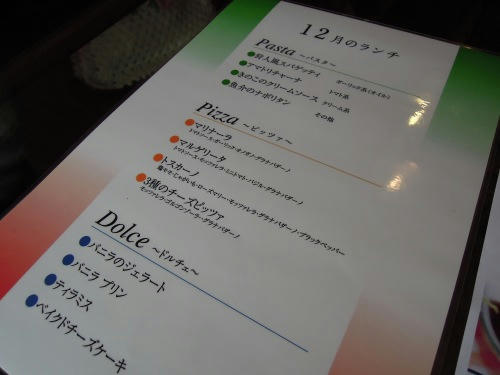 12月のランチ
Pasta ～パスタ～
狩人風スパゲッティ ガーリック系(オイル)
アマトリチャーナ トマト系
きのこのクリームソース クリーム系
魚介のナポリタン その他
Pizza ～ピッツァ～
マリナーラ
トマトソース・ガーリック・オレガノ・グラナパダーノ
マルゲリータ
トマトソース・モッツァレラ・ミニトマト・バジル・グラナパダーノ
トスカーノ
モッツァレラ・グラナパダーノ・ブラックペッパー
3種のチーズピッツァ
モッツァレラ・ゴルゴンゾーラ・グラナパダーノ
Dolce ～ドルチェ～
バニラのジェラート
バニラ プリン
ティラミス
ベイクドチーズケーキ